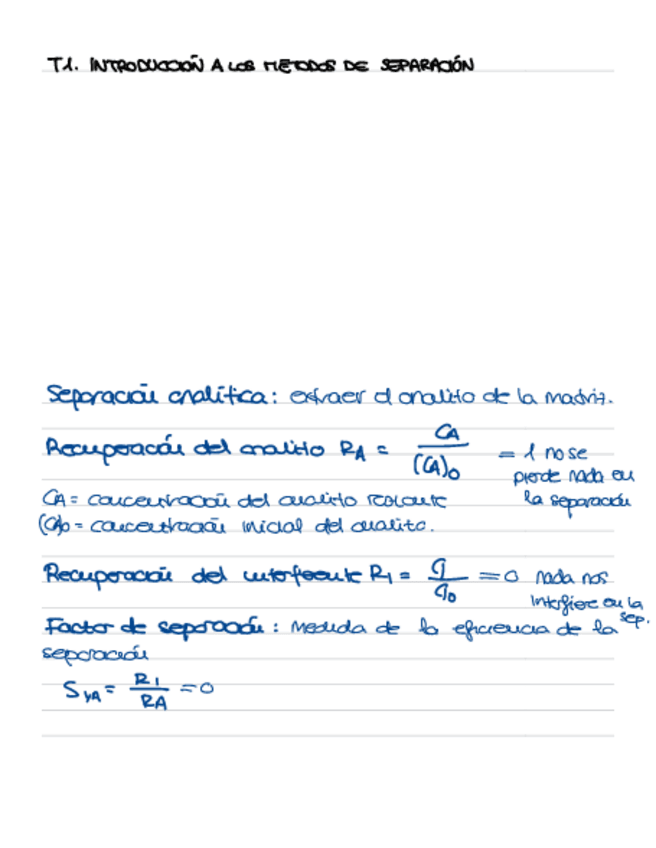 T1. INTRODUCCIÓN A LOS METODOS DE SEPARACIÓN
Separación analítica: extraer el analito de la matriz.
Recuperación del analito RA = CA / (CA)0 = 1 no se pierde nada en la separación
CA = concentración del analito restante
(CA)0 = concentración inicial del analito.
Recuperación del interferente RI = CI / CI0 = 0 nada nos interfiere en la sep.
Factor de separación: Medida de la eficiencia de la
separación
S I/A = RI / RA = 0